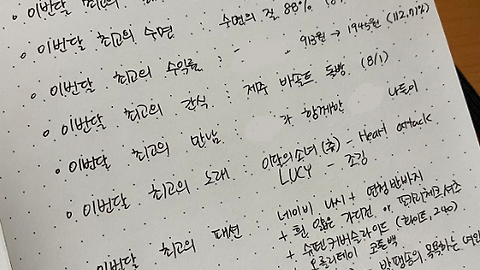 이번달 최고의
이번달 최고의 수면 수면의 질 88%
이번달 최고의 수익률 : 913원 → 1945원 (112.71%)
이번달 최고의 간식 : 제주 바솔트 동방 (8/1)
이번달 최고의 만남 : 각 함께한 나들이
이번달 최고의 노래 이달의소녀 (츄) - Heart attack
LUCY - 조깅
이번달 최고의 패션 네이비 나시 + 연청반바지
+ 흰 얇은 가디건 or
+ 슈텐커버슬라이드 (화이트, 240)
+ 코듀백